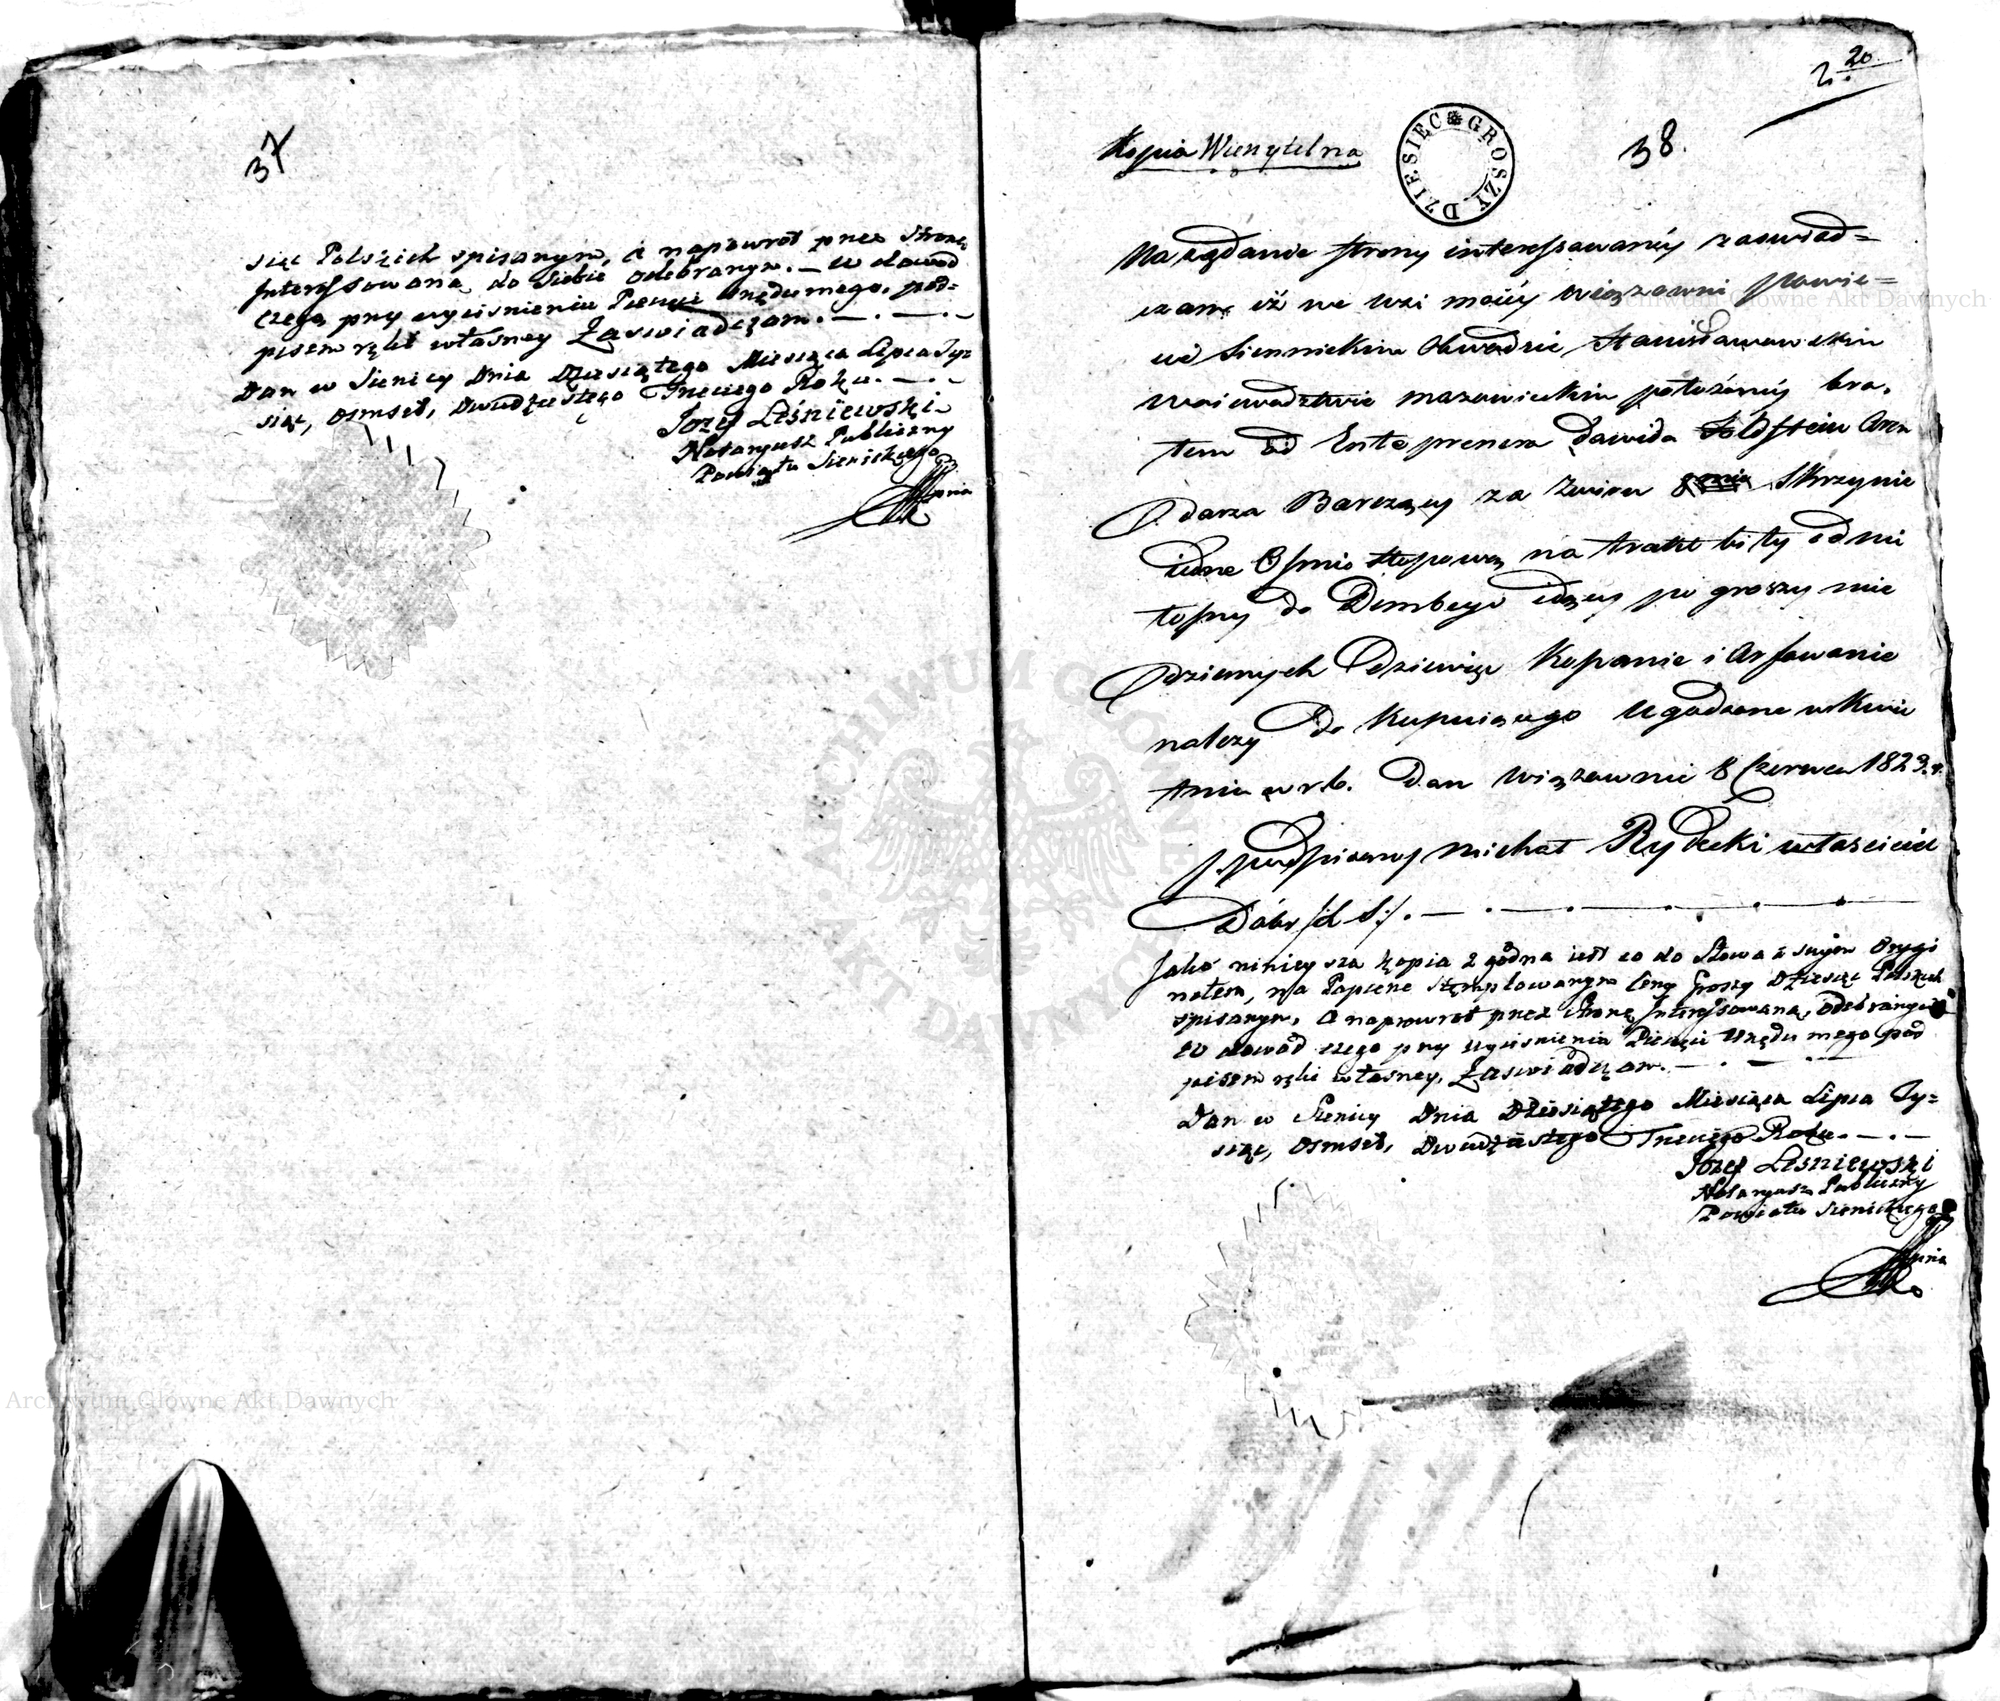 37
sięć Polskich spisanym, a napowrot przez Stronę
Interessowaną do Siebie odebranym. — w dowód
czego przy wyciśnieniu Pieczęci Urzędu mego, pod=
pisem ręki własney Zaswiadczam. — . — . —
Dan w Sienicy Dnia Dziesiątego Miesiąca Lipca Ty=
siąc, osmset, Dwudziestego Trzeciego Roku. — . —
Jozef Leśniewski
Notaryusz Publiczny
Powiatu Sienickiego
mpria
20.
2.
Kopia Wierzytelna
DZIESIĘC GROSZY
38.
Na żądanie strony interessowanéy zaswiad=
czam iż we wsi moiéy Wiązowni Powie=
cie Siennickim Obwodzie Stanisławowskim
Woiewodztwie mazowieckim położonéy bra.
tem od Enteprenera Dawida Goldstein Aren
darza Barczący za Zwiru Skrzynie
iedne Osmio stopową na trakt bity od mi
łosny do Dembego idący po groszy mie
dzianych Dziewięc Kopanie i Arfowanie
nalezy do Kupuiącego Ugodzone w Kwie
tniu w r. b. Dan Wiązownie 8 Czerwca 1823. r.
podpisany michał Rydecki właściciel
Dóbr /: L. S :/ . — . — . — . — . —
Jako niniejsza kopia zgodna iest co do Słowa z swym Orygi
nałem, na Papierze Stęmplowanym Ceny Groszy Dziesięć Polskich
spisanym, a napowrot przez Stronę Interessowaną, odebranym
w dowód czego przy wyciśnieniu Pieczęci Urzędu mego pod
pisem ręki własney, Zaswiadczam. — . —
Dan w Sienicy Dnia Dziesiątego Miesiąca Lipca Ty=
siąc, osmset, Dwudziestego Trzeciego Roku. — . —
Jozef Leśniewski
Notaryusz Publiczny
Powiatu Sienickiego
mpria
Archiwum Główne Akt Dawnych
Archiwum Główne Akt Dawnych
ARCHIWUM GŁÓWNE AKT DAWNYCH